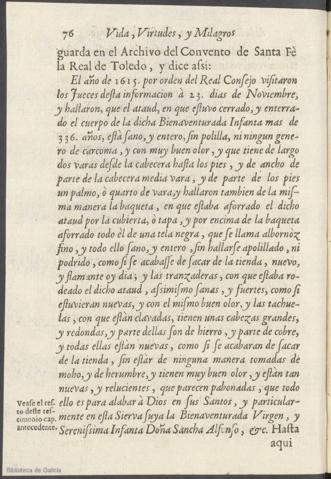 76 Vida, Virtudes, y Milagros
guarda en el Archivo del Convento de Santa Fè
la Real de Toledo, y dice assi:
El año de 1615. por orden del Real Consejo visitaron
los Jueces desta informacion à 23. dias de Noviembre,
y hallaron, que el ataud, en que estuvo cerrado, y enterra-
do el cuerpo de la dicha Bienaventurada Infanta mas de
336. años, està sano, y entero, sin polilla, ni ningun gene-
ro de carcoma, y con muy buen olor, y que tiene de largo
dos varas desde la cabecera hasta los pies, y de ancho de
parte de la cabecera media vara, y de parte de los pies
un palmo, ò quarto de vara, y hallaron tambien de la mis-
ma manera la baqueta, en que estaba aforrado el dicho
ataud por la cubierta, ò tapa, y por encima de la baqueta
aforrado todo èl de una tela negra, que se llama albornòz
fino, y todo ello sano, y entero, sin hallarse apolillado, ni
podrido, como si se acabasse de sacar de la tienda, nuevo,
y flamante oy dia; y las tranzaderas, con que estaba ro-
deado el dicho ataud, assimismo sanas, y fuertes, como si
estuvieran nuevas, y con el mismo buen olor, y las tachue-
las, con que estàn clavadas, tienen unas cabezas grandes,
y redondas, y parte dellas son de hierro, y parte de cobre,
y todas ellas estàn nuevas, como si se acabaran de sacar
de la tienda, sin estàr de ninguna manera tomadas de
moho, y de herrumbre, y tienen muy buen olor, y estàn tan
nuevas, y relucientes, que parecen pabonadas, que todo
ello es para alabar à Dios en sus Santos, y particular-
mente en esta Sierva suya la Bienaventurada Virgen, y
Serenissima Infanta Doña Sancha Alfonso, &c. Hasta
aqui
Vease el res-
to deste tes-
timonio cap.
antecedente.
Biblioteca de Galicia